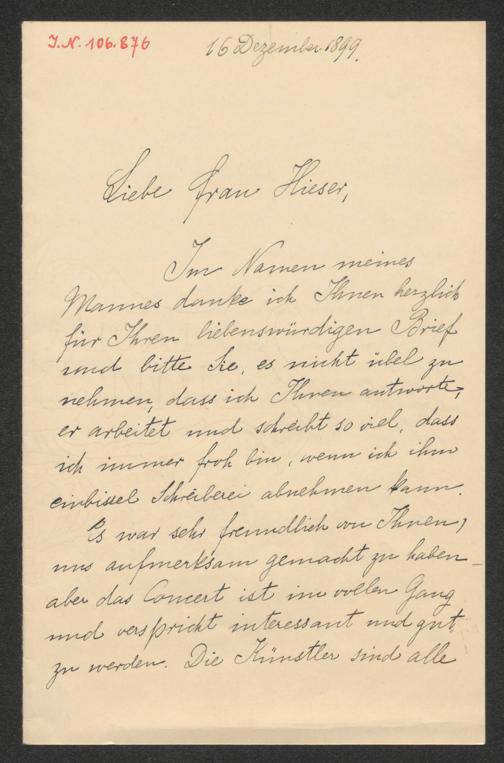 J.N. 106.876
16 Dezember 1899.
Liebe Frau Hieser,
Im Namen meines
Mannes danke ich Ihnen herzlich
für Ihren liebenswürdigen Brief
und bitte Sie, es nicht übel zu
nehmen, dass ich Ihnen antworte,
er arbeitet und schreibt so viel, dass
ich immer froh bin, wenn ich ihm
einbissel Schreiberei abnehmen kann.
Es war sehr freundlich von Ihnen,
uns aufmerksam gemacht zu haben –
aber das Concert ist im vollen Gang
und verspricht interessant und gut
zu werden. Die Künstler sind alle